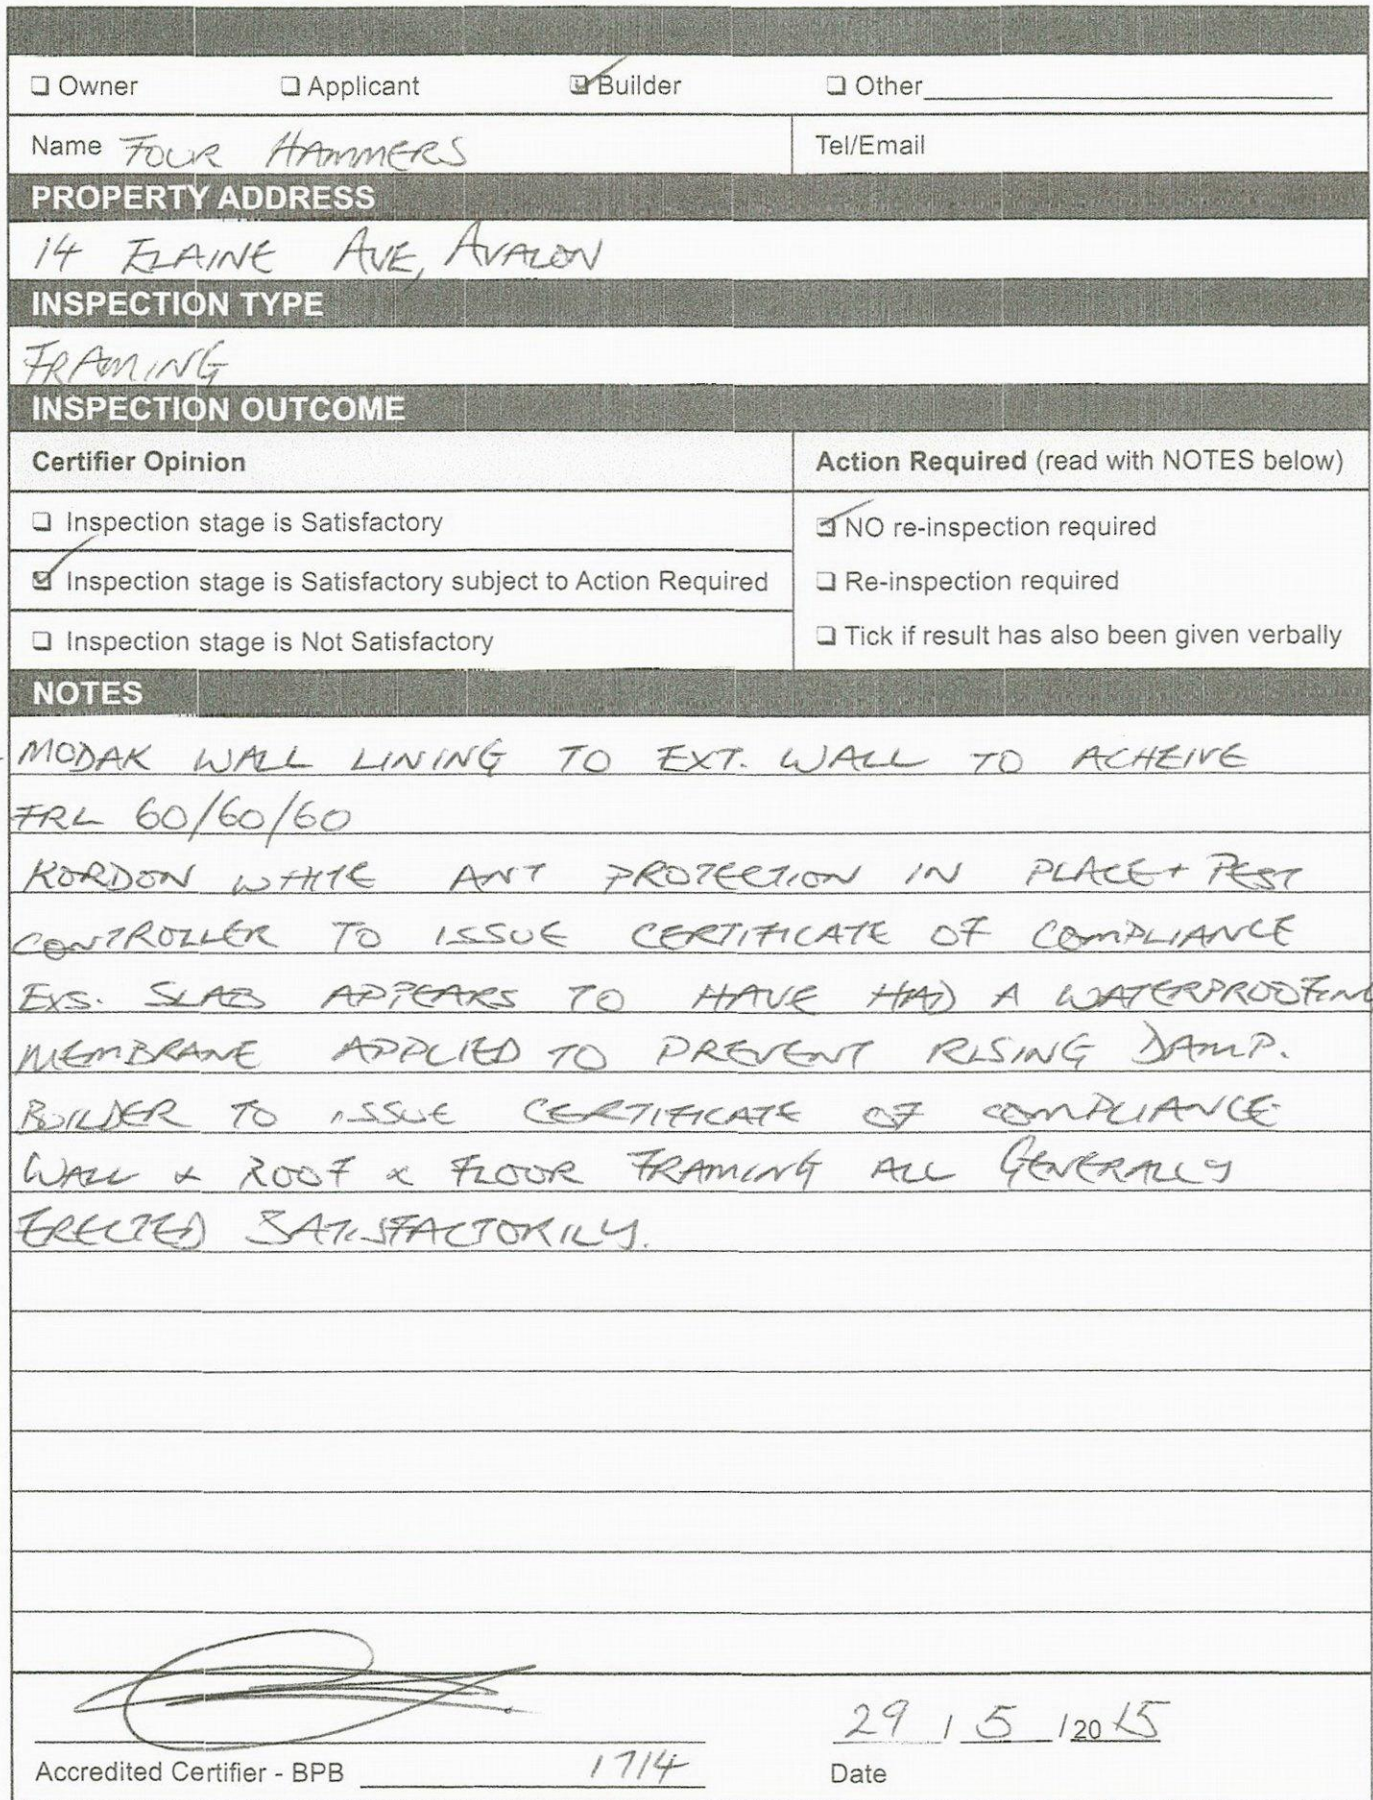 Owner Applicant Builder Other
Name FOUR HAMMERS Tel/Email
PROPERTY ADDRESS
14 ELAINE AVE, AVALON
INSPECTION TYPE
FRAMING
INSPECTION OUTCOME
Certifier Opinion Action Required (read with NOTES below)
Inspection stage is Satisfactory NO re-inspection required
Inspection stage is Satisfactory subject to Action Required Re-inspection required
Inspection stage is Not Satisfactory Tick if result has also been given verbally
NOTES
MODAK WALL LINING TO EXT. WALL TO ACHEIVE
FRL 60/60/60
KORDON WHITE ANT PROTECTION IN PLACE + PEST
CONTROLLER TO ISSUE CERTIFICATE OF COMPLIANCE
EXS. SLAB APPEARS TO HAVE HAD A WATERPROOFING
MEMBRANE APPLIED TO PREVENT RISING DAMP.
BUILDER TO ISSUE CERTIFICATE OF COMPLIANCE
WALL & ROOF & FLOOR FRAMING ALL GENERALLY
ERECTED SATISFACTORILY.
29 / 5 / 20 15
Accredited Certifier - BPB 1714 Date